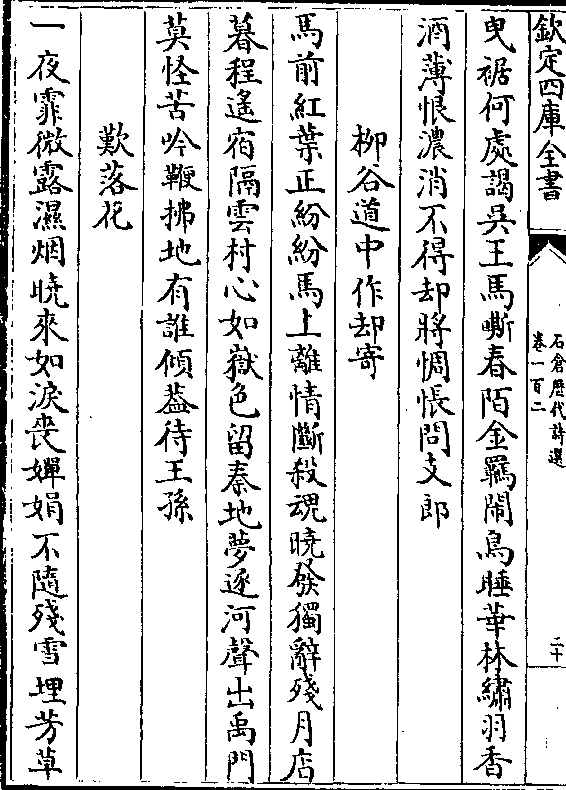 欽定四庫全書
石倉歷代詩選
卷一百二
二十
曳裾何處謁吳王馬嘶春陌金羈鬧鳥睡華林繡羽香
酒薄恨濃消不得却將惆悵問支郎
柳谷道中作却寄
馬前紅葉正紛紛馬上離情斷殺魂曉發獨辭殘月店
暮程遙宿隔雲村心如嶽色留秦地夢逐河聲出禹門
莫怪苦吟鞭拂地有誰傾葢待王孫
歎落花
一夜霏微露濕烟曉來如淚喪嬋娟不隨殘雪埋芳草